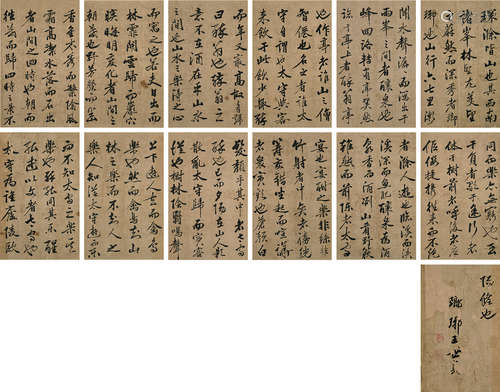 環滁皆山也其西南
諸峯林壑尤美望
蔚然而深秀者
瑯琊也山行六七里漸
聞水聲潺潺而瀉于
峰回路轉有亭翼然
臨于泉上者醉翁亭
也作亭者誰山之僧
智僊也名之者誰太
守自謂也太守與客
來飲于此飲少輒醉
而年又最高故自號
曰醉翁也醉翁之
意不在酒在乎山水
之間也山水之樂得之心
而寓之酒也若夫日出而
林霏開雲歸而巖穴
暝晦明變化者山間之
朝暮也野芳發而幽
香佳木秀而繁陰風
霜高潔水落而石出
者山間之四時也朝而
往暮而歸四時之景不
同而樂亦無窮也至
于負者歌于途行者
休于樹前者呼後者應
傴僂提攜往來而不絕
者滁人遊也臨溪而漁溪
深而魚肥釀泉為酒泉
香而酒洌山肴野蔌
雜然而前陳者太守
宴也宴酣之樂非絲非
竹射者中弈者勝觥
籌交錯坐起而諠譁
者眾賓懽也蒼顏白
髮頹乎其中者太守
醉也已而夕陽在山人影
散亂太守歸而賓客
從也樹林陰翳鳴聲
上下遊人去而禽鳥
樂也然而禽鳥知山
林之樂而不知人之
樂人知從太守遊而樂
而不知太守之樂其
樂也醉能同其樂醒
能述以文者太守也
太守謂誰廬陵歐
陽脩也
瑯琊王